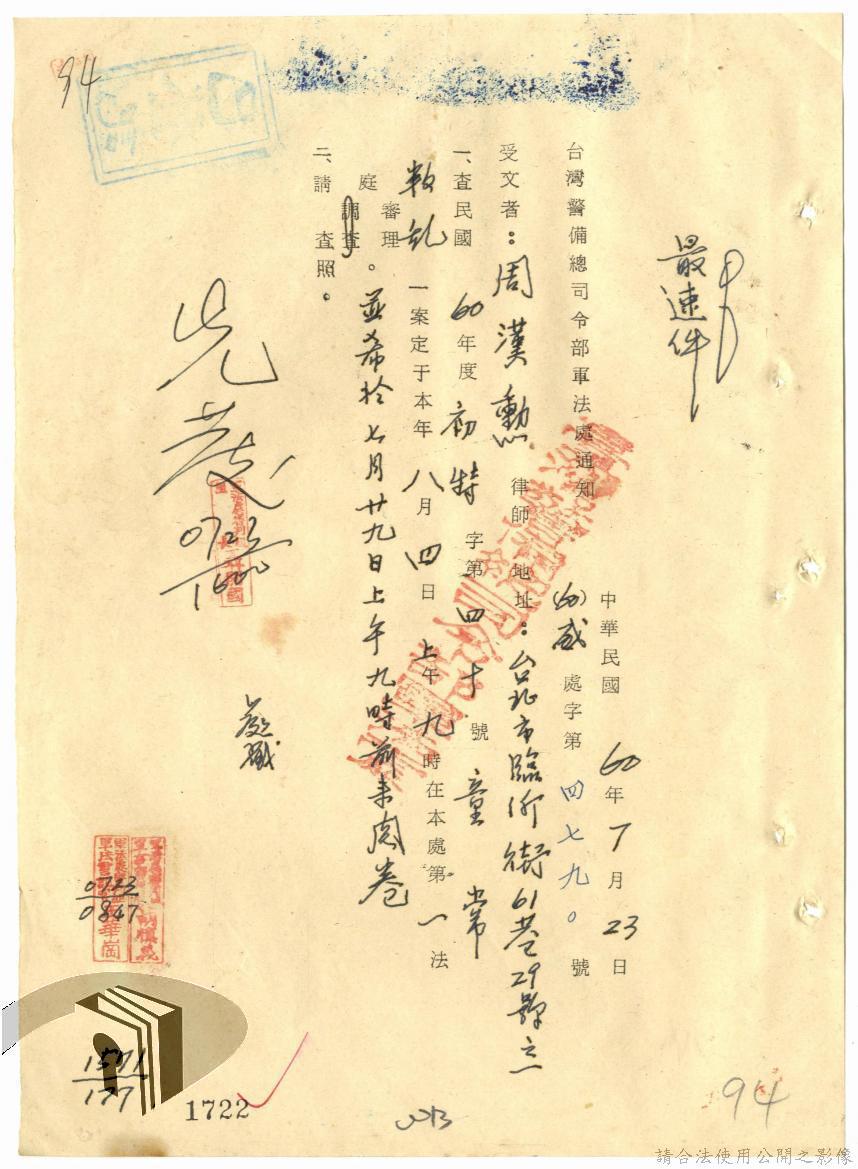 最速件
中華民國60年7月23日
(60)處字第四七九〇號
台灣警備總司令部軍法處通知
受文者：周漢勳律師 地址：台北市臨沂街61巷29號之一
一、查民國60年度初特字第四十號童常
叛乱一案定于本年八月四日上午九時在本處第一法
庭審理。並希於七月廿九日上午九時前來閱卷
調查
二、請查照。
0723
1600
0723
0847
1571
177
1722
94
94
請合法使用公開之影像